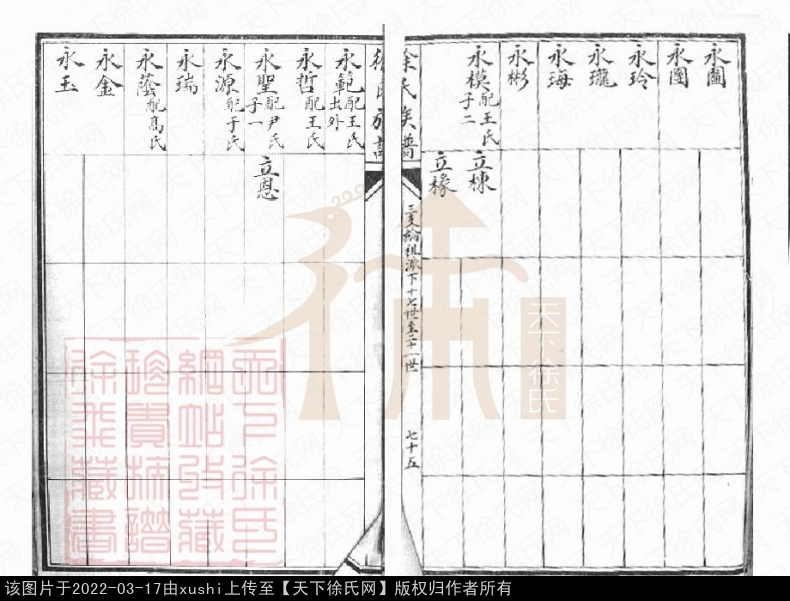 永圃
永圖
永玲
永瓏
永海
永彬
永模 配王氏 子二
立棟
立椽
徐氏族譜
三支綸祖派下十七世至二十一世
七十五
永範 配王氏 出外
永哲 配王氏
永聖 配尹氏 子一
立恩
永源 配于氏
永瑞
永蔭 配高氏
永金
永玉
天下徐氏
天下徐氏
網站收藏
珍貴族譜
徐丰藏書
该图片于2022-03-17由xushi上传至【天下徐氏网】版权归作者所有